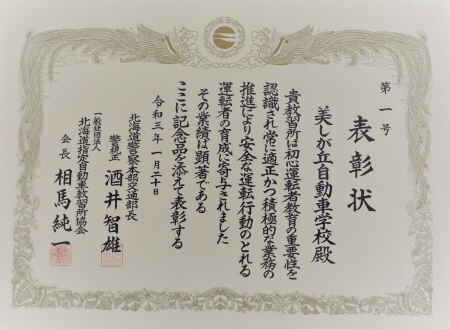 第一号
表彰状
美しが丘自動車学校殿
貴教習所は初心運転者教育の重要性を
認識され常に適正かつ積極的な業務の
推進により安全な運転行動のとれる
運転者の育成に寄与されました
その業績は顕著である
ここに記念品を添えて表彰する
令和三年一月二十日
北海道警察本部交通部長
警視正 酒井智雄
一般社団法人
北海道指定自動車教習所協会
会長 相馬純一